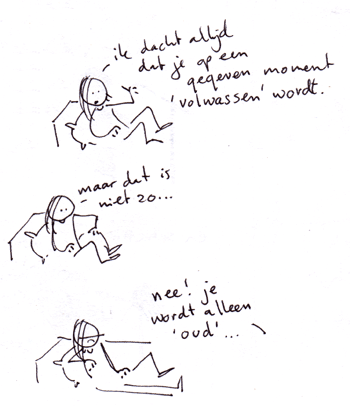 ik dacht altijd
dat je op een
gegeven moment
'volwassen' wordt.
maar dat is
niet zo...
nee! je
wordt alleen
'oud'...